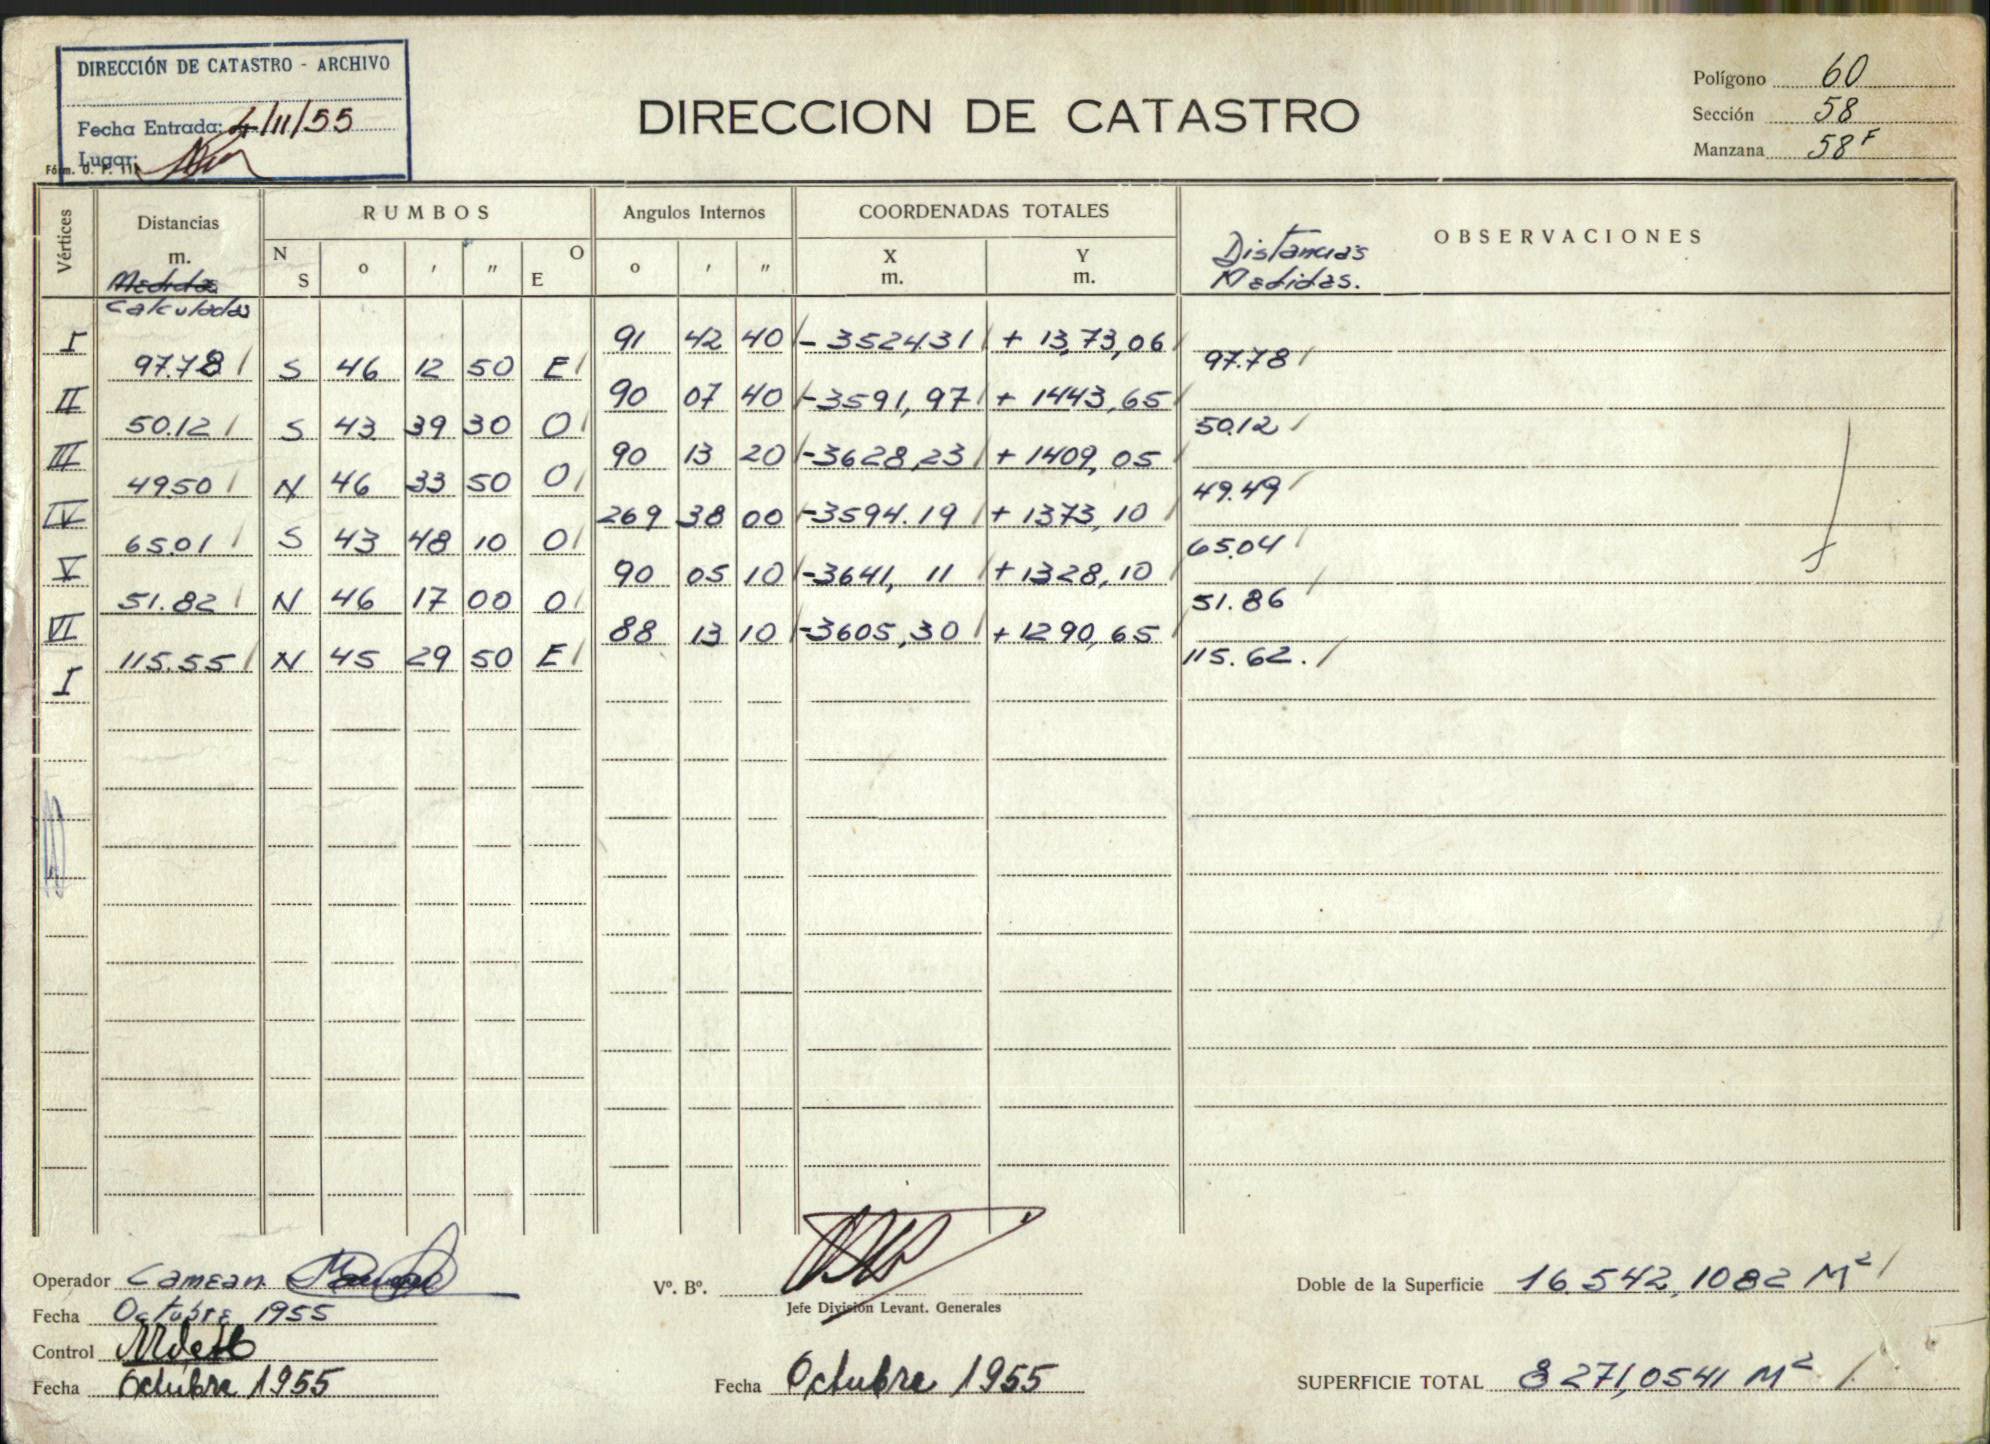 DIRECCIÓN DE CATASTRO - ARCHIVO
Fecha Entrada: 4/11/55
Lugar:
Fórm. O. P. 11
DIRECCION DE CATASTRO
Polígono 60
Sección 58
Manzana 58F
Vértices Distancias m. RUMBOS Angulos Internos COORDENADAS TOTALES OBSERVACIONES
Medidas
Calculadas
N S ° ' " O E ° ' " X m. Y m.
Distancias
Medidas.
I 91 42 40 - 3524.31 + 13,73,06
97.78 S 46 12 50 E 97.78
II 90 07 40 -3591,97 + 1443,65
50.12 S 43 39 30 O 50.12
III 90 13 20 -3628,23 + 1409,05
49.50 N 46 33 50 O 49.49
IV 269 38 00 -3594.19 + 1373,10
65.01 S 43 48 10 O 65.04
V 90 05 10 -3641,11 +1328,10
51.82 N 46 17 00 O 51.86
VI 88 13 10 -3605,30 +1290,65
115.55 N 45 29 50 E 115.62.
I
Operador Camean
Fecha Octubre 1955
Control
Fecha Octubre 1955
Vº. Bº.
Jefe División Levant. Generales
Fecha Octubre 1955
Doble de la Superficie 16.542,1082 M²
SUPERFICIE TOTAL 8271,0541 M²